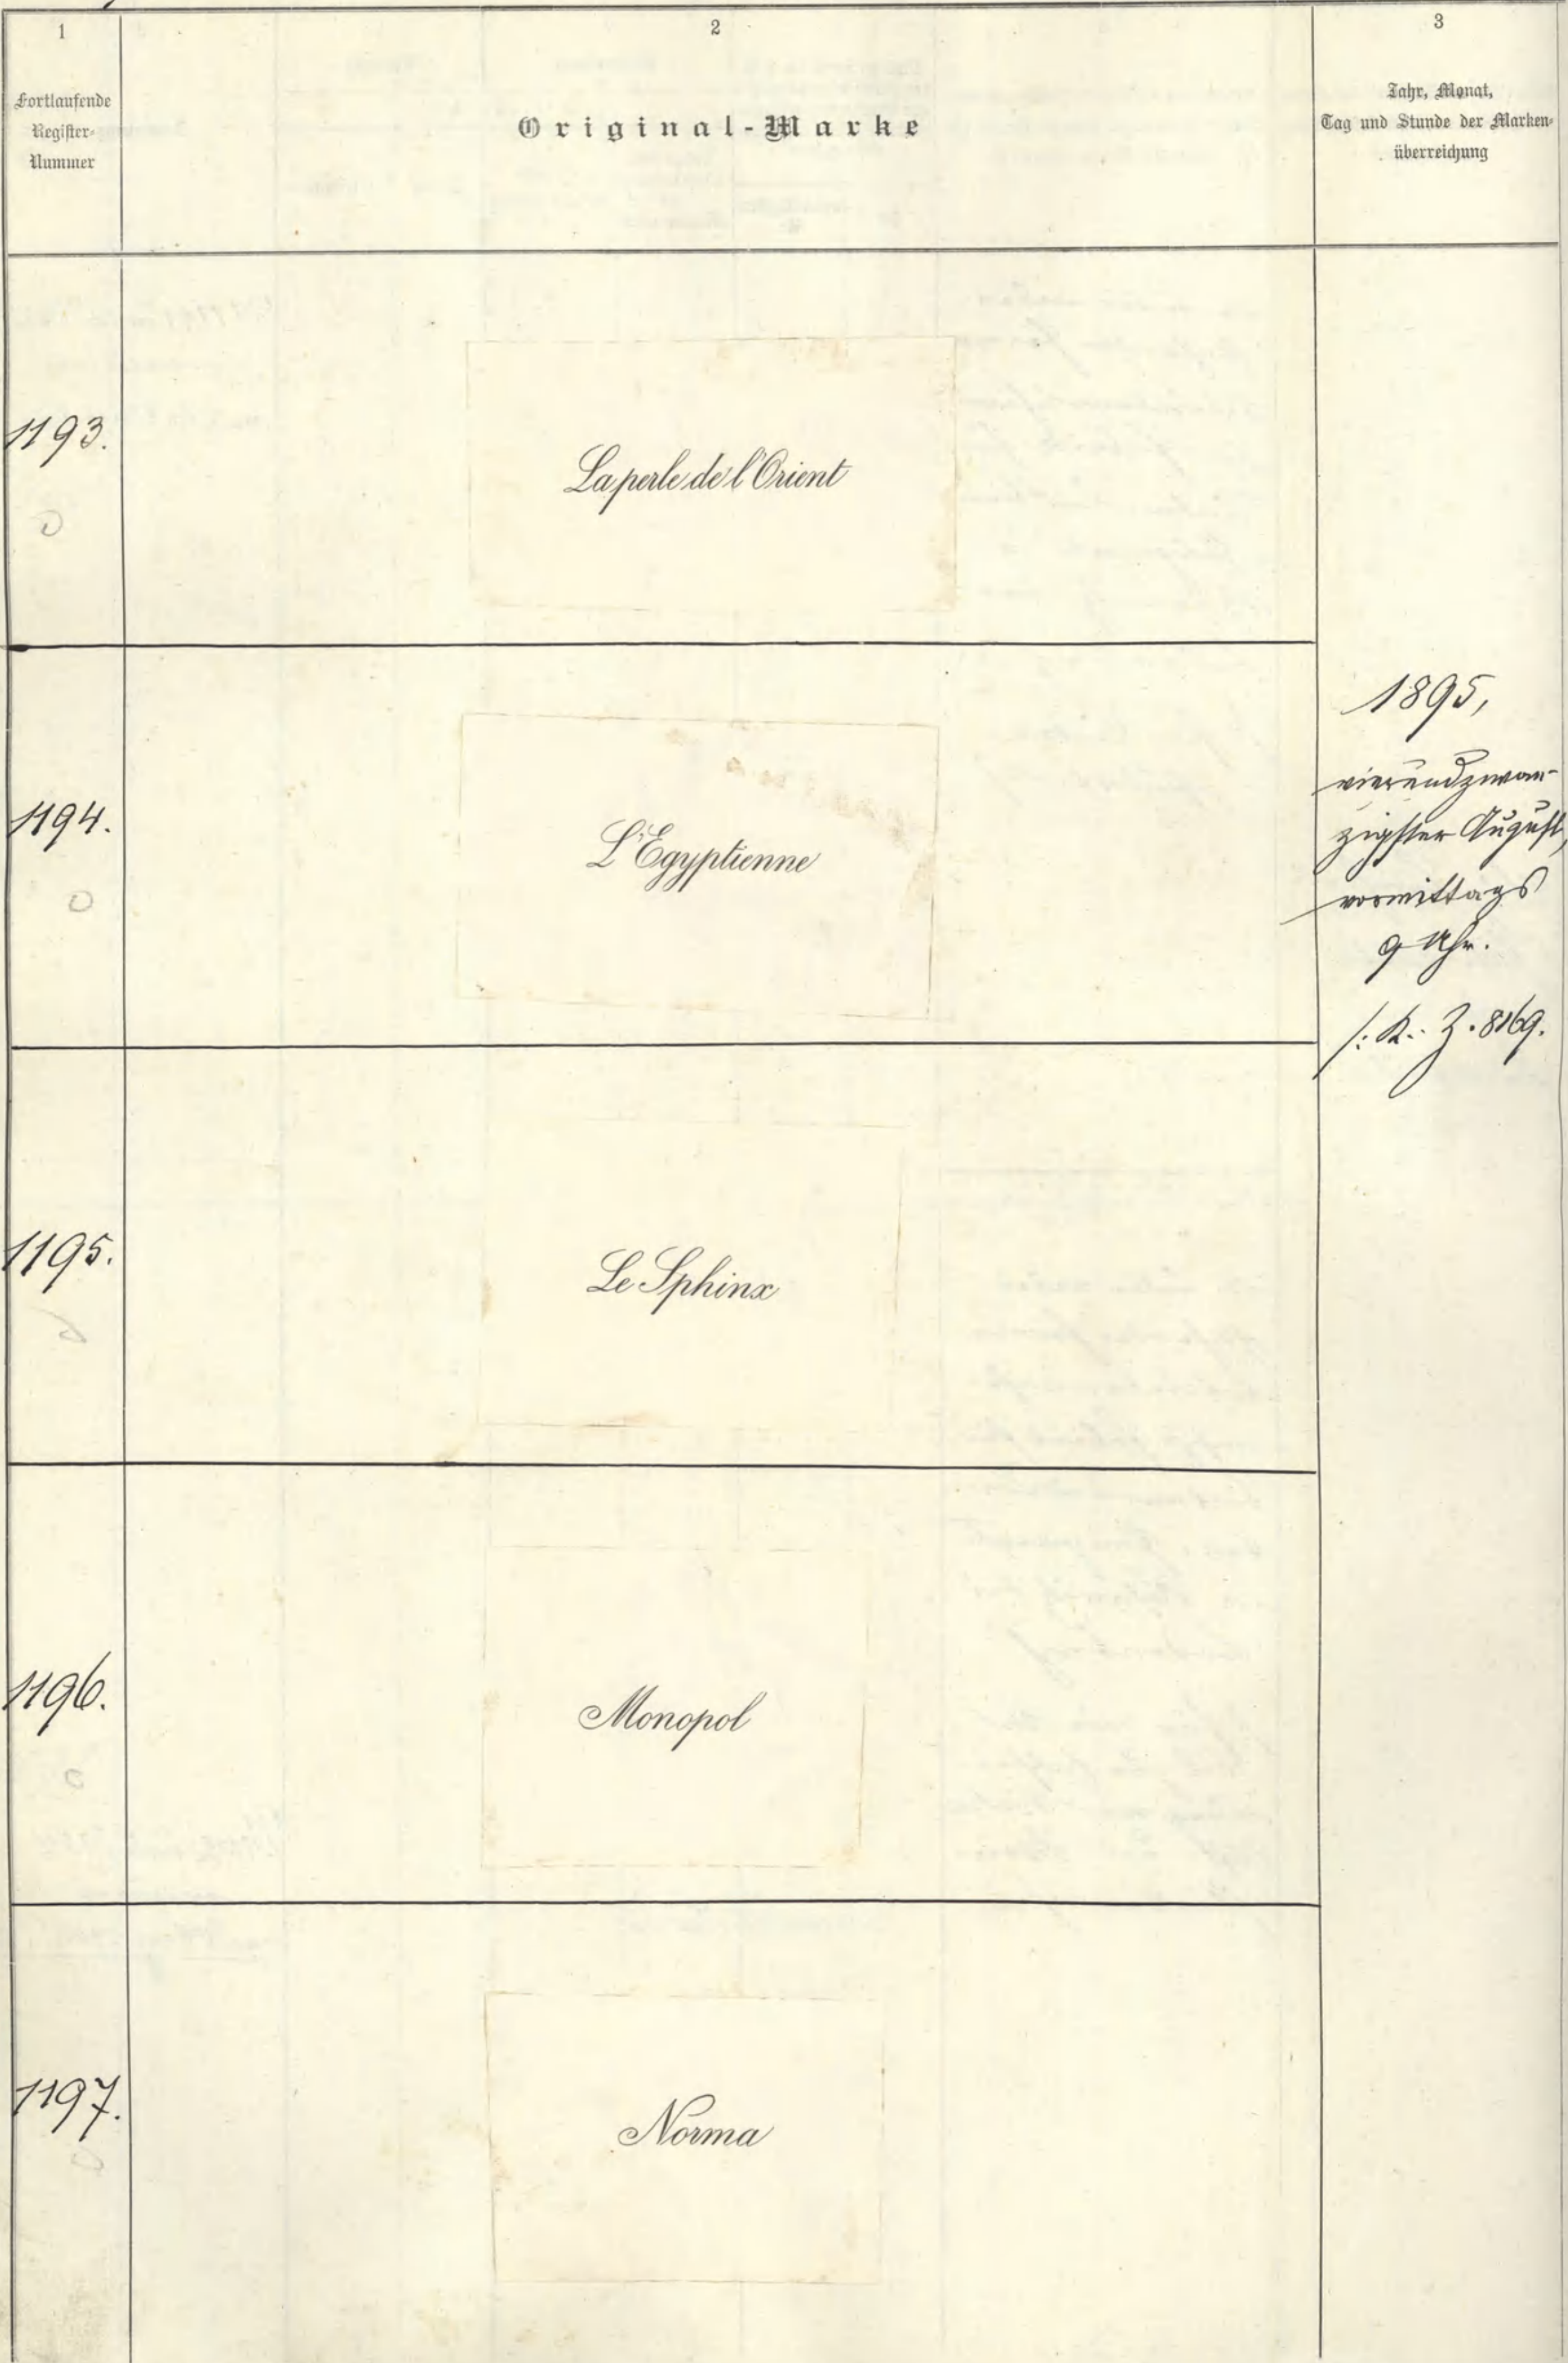 1
2
3
Fortlaufende
Register-
Nummer
Original-Marke
Jahr, Monat,
Tag und Stunde der Marken-
überreichung
1193.
La perle de l'Orient
1194.
L'Egyptienne
1895,
vierundzwan-
zigster August,
vormittags
9 Uhr.
/: K. Z. 8169.
1195.
Le Sphinx
1196.
Monopol
1197.
Norma